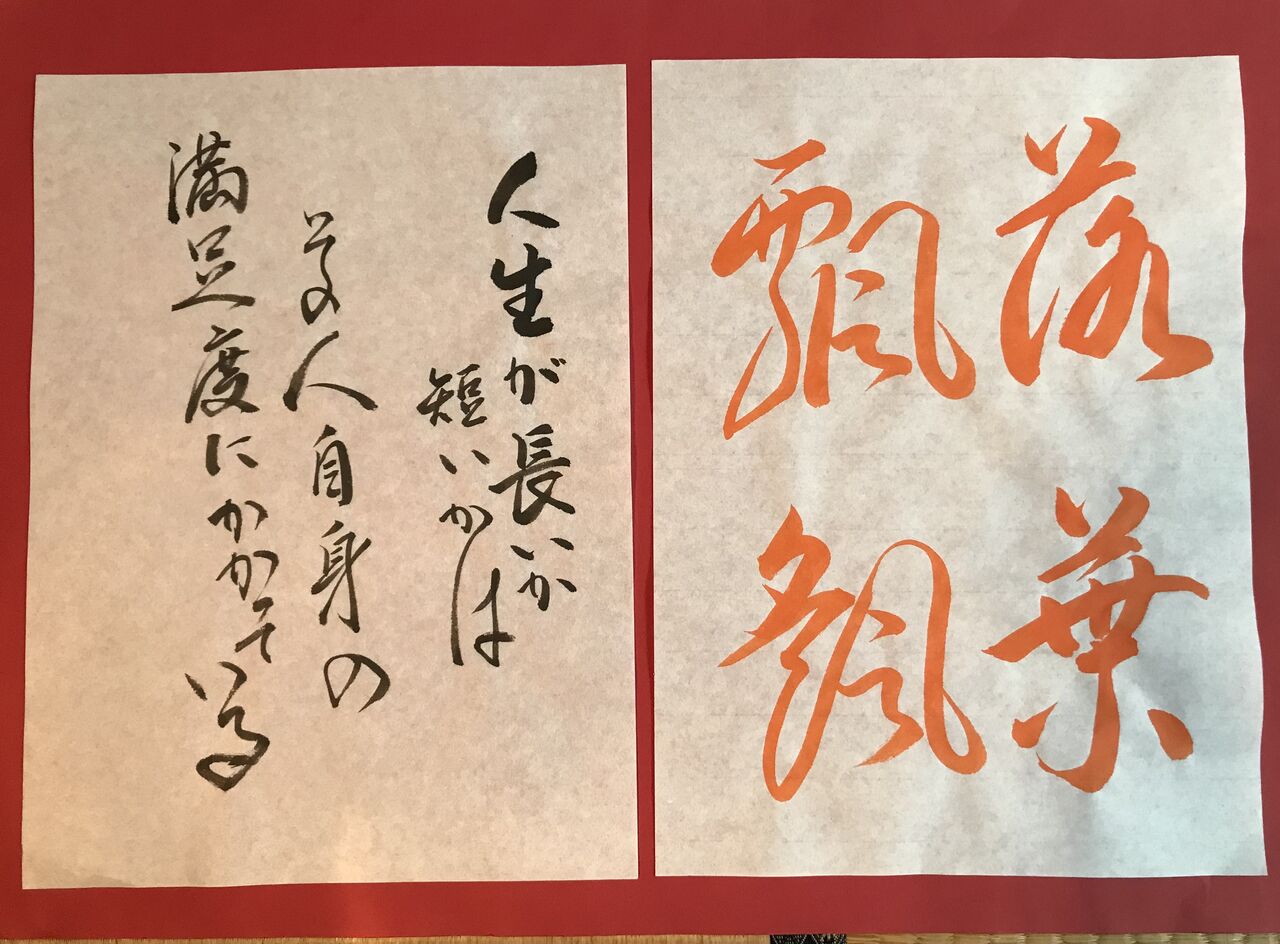 落葉
飄颻
人生が長いか
短いかは
その人自身の
満足度にかかっている